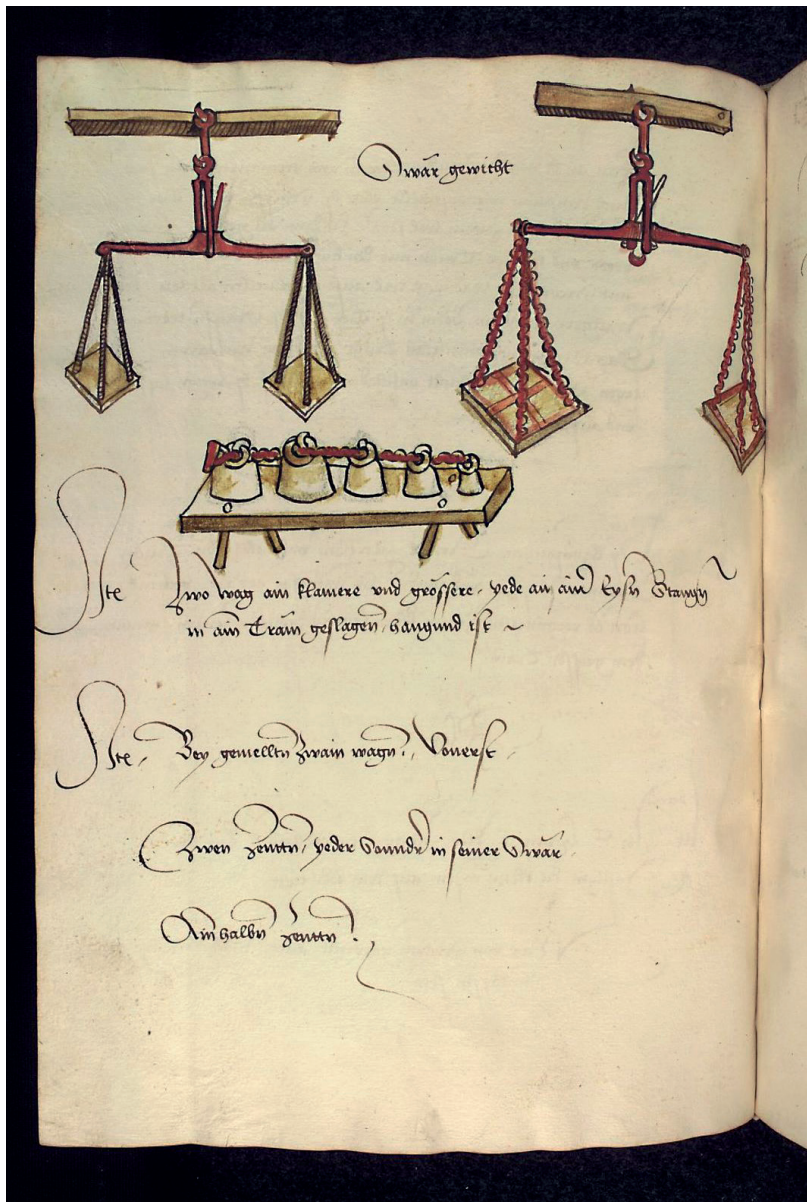 Swär gewicht
Ite Zwo wag ain klainere vnd grössere, yede an ainer Eysn Stangn
in ain Träm geslagen, hangund ist ~
Ite, Bey gemelltn Zwain wagn, Vonerst
Zwen Zenttn, yeder Sonndr in seiner Swär
Ain halbn Zenttn.